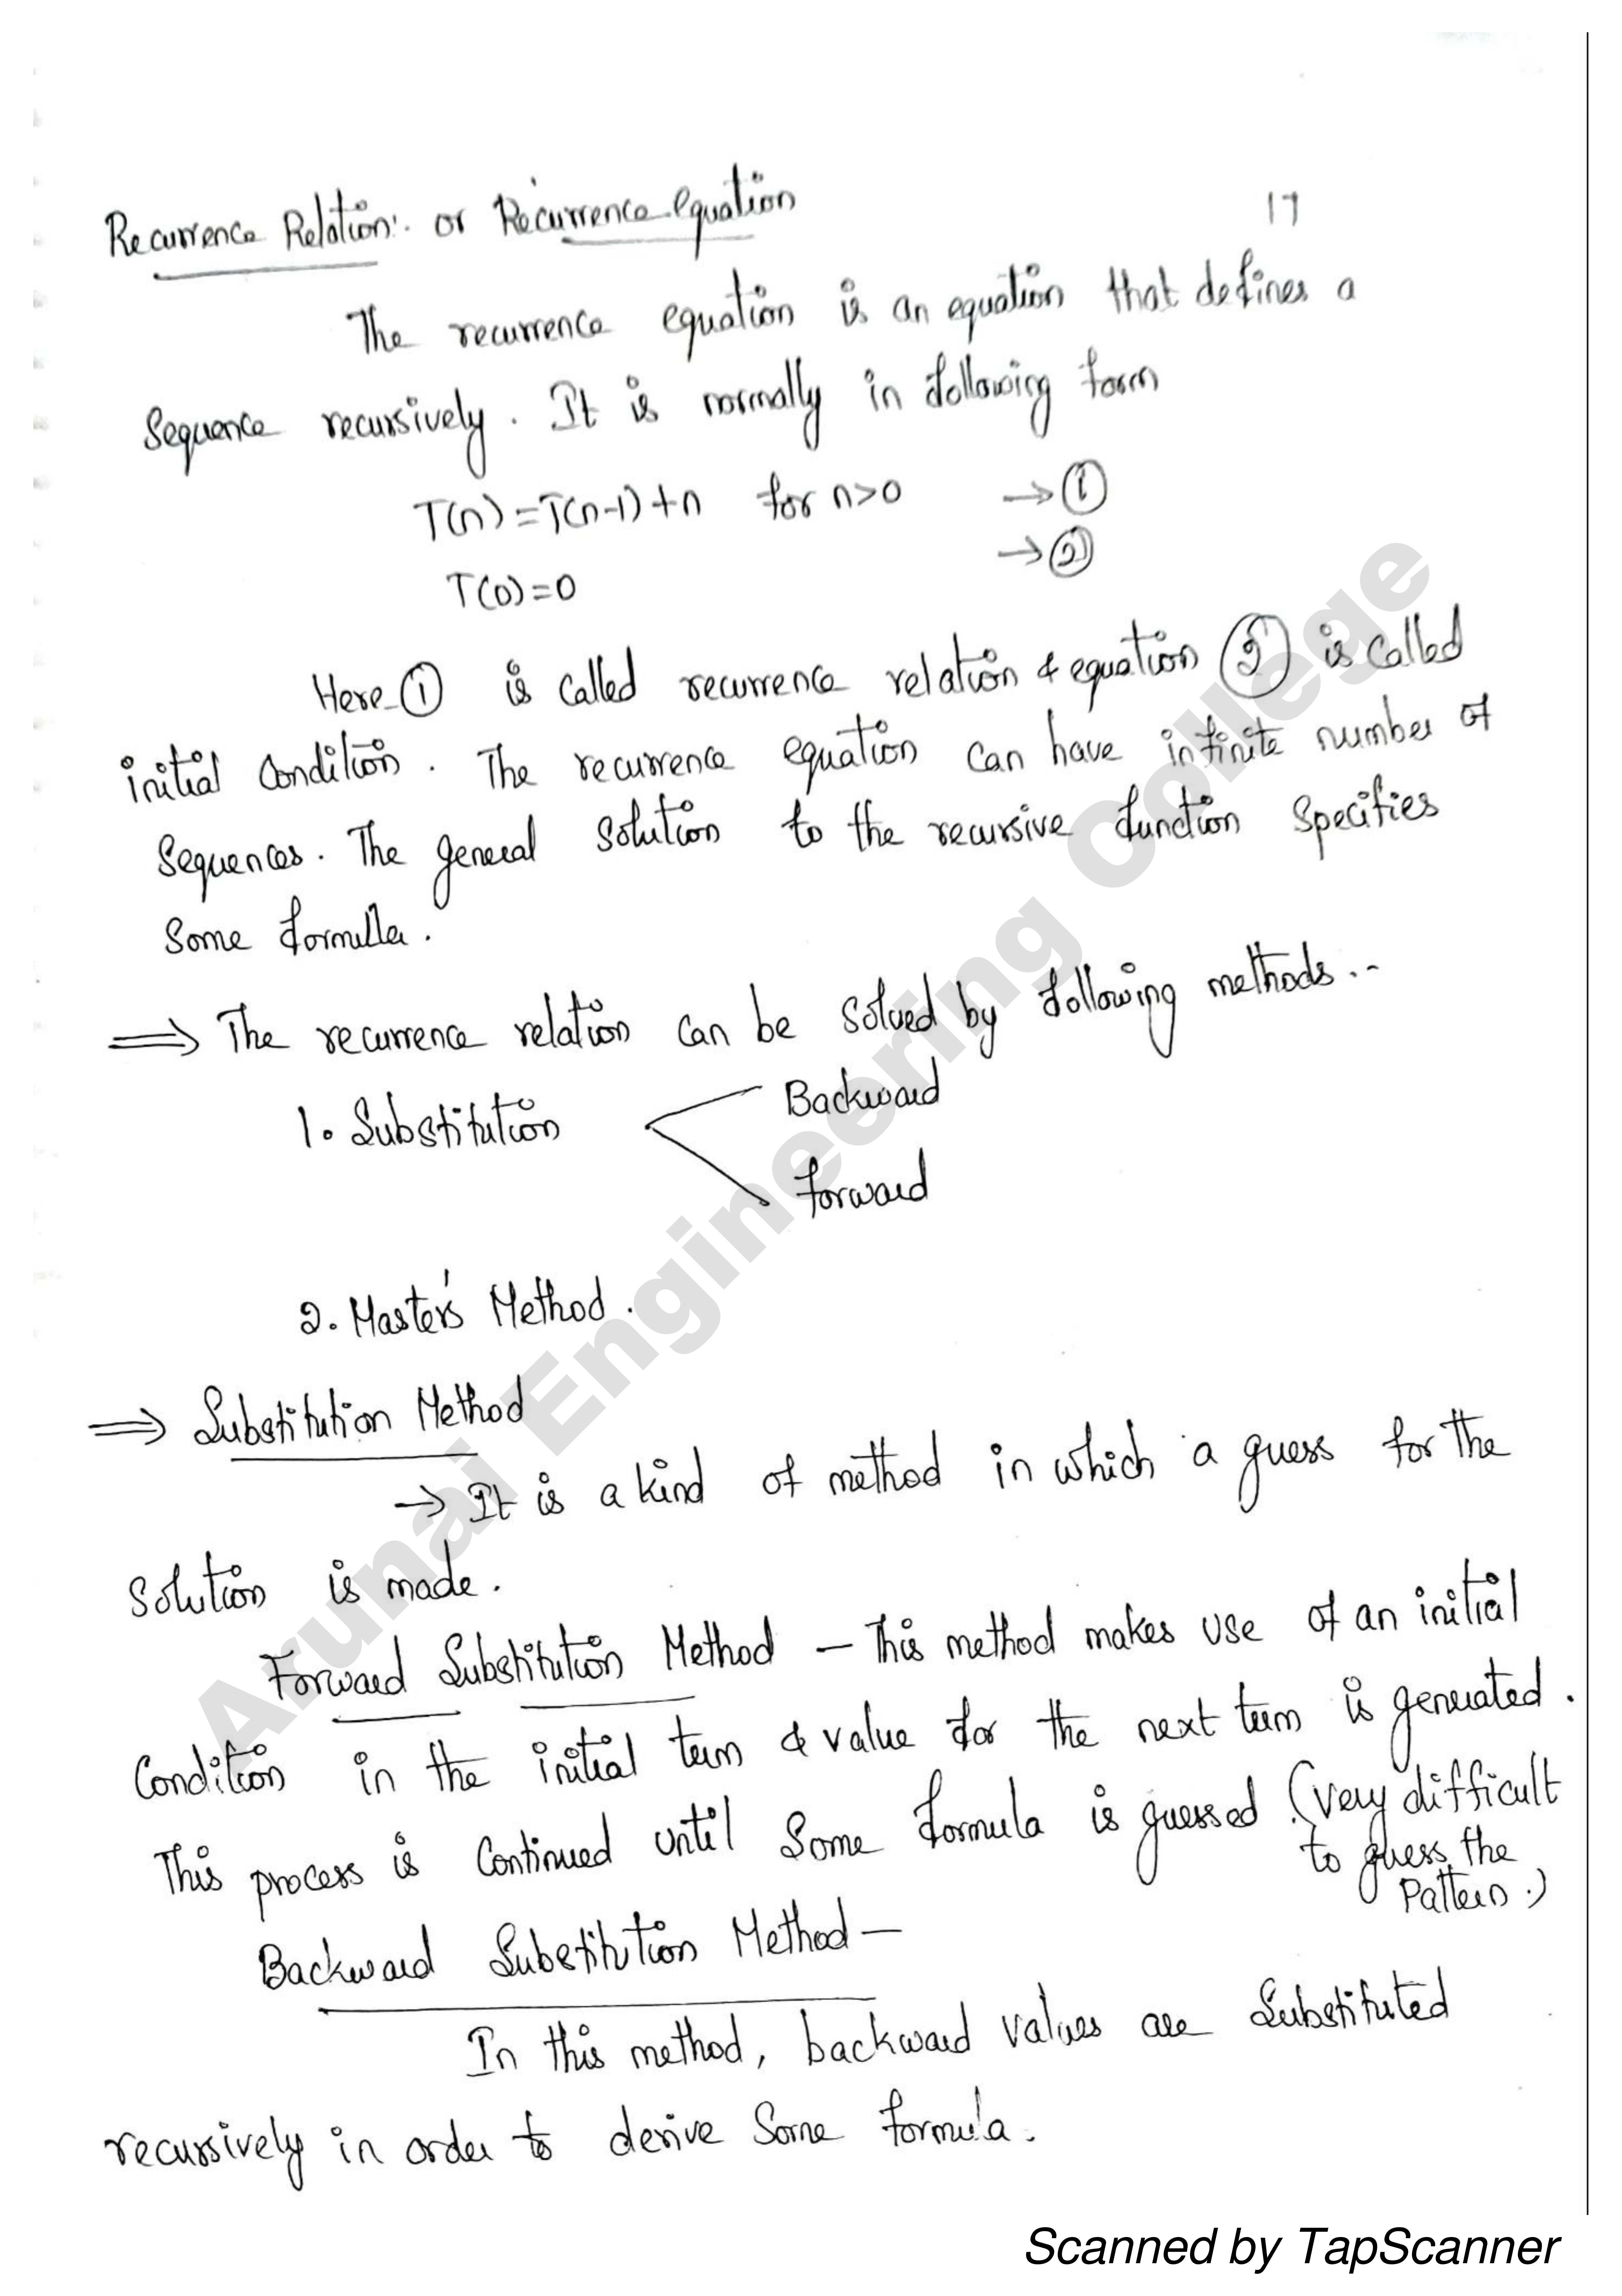 17
Recurrence Relation:. or Recurrence equation
The recurrence equation is an equation that defines a
Sequence recursively. It is normally in following form
T(n)=T(n-1)+n for n>0 → ①
→ ②
T(0)=0
Here ① is called recurrence relation & equation ② is called
initial Condition. The recurrence equation can have infinite number of
Sequences. The general solution to the recursive function specifies
Some formulla.
⇒ The recurrence relation can be solved by following methods..-
1. Substitution
Backward
forward
2. Master's Method.
⇒ Substitution Method
→ It is a kind of method in which a guess for the
Solution is made.
Forward Substitution Method – This method makes use of an initial
Condition in the initial term & value for the next term is generated.
This process is Continued until Some formula is guessed (very difficult
to guess the
Pattern.)
Backward Substitution Method –
In this method, backward values are Substituted
recursively in order to derive Some formula.
Arunai Engineering College
Scanned by TapScanner